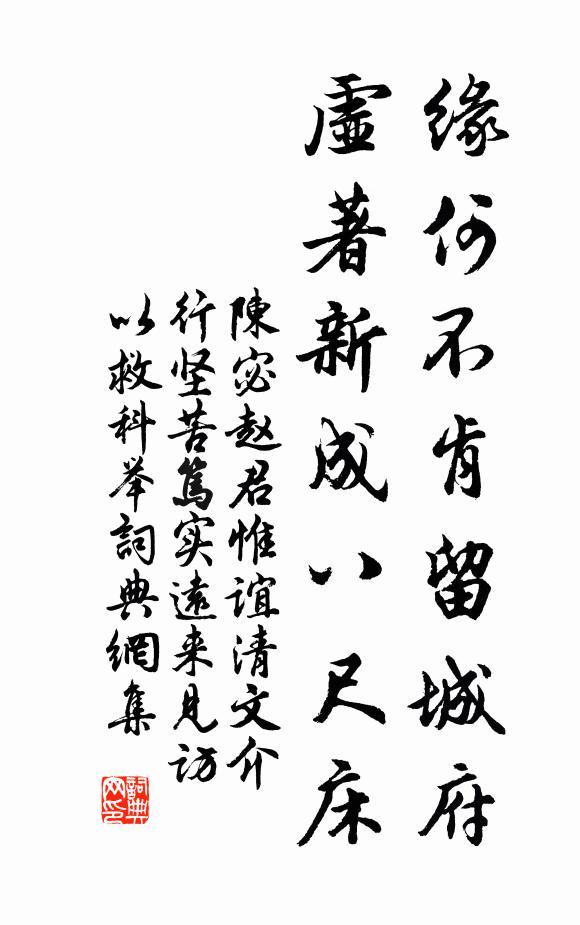 緣何不肯留城府
虛著新成八尺床
陳宓赵君惟誼清文介
行坚苦篤实遠来見访
以救科举詞典網集
詞典网印